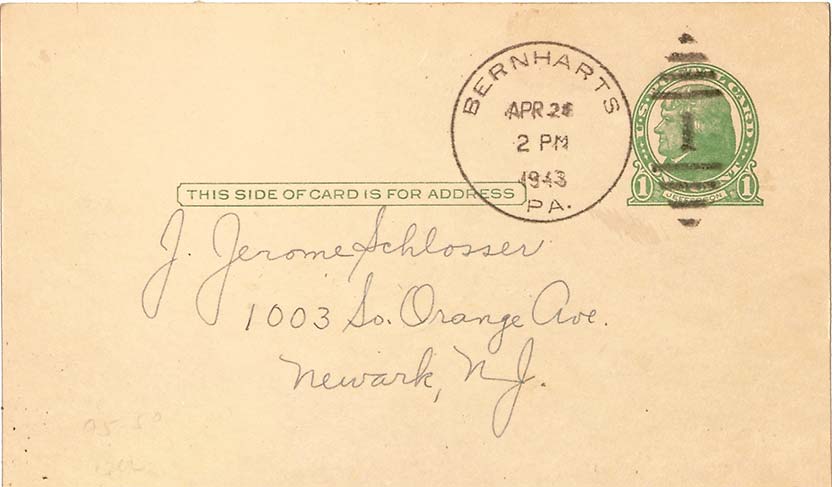 BERNHARTS
APR 24
2 PM
1943
PA.
U.S. POSTAL CARD
1 JEFFERSON 1
THIS SIDE OF CARD IS FOR ADDRESS
J. Jerome Schlosser
1003 So. Orange Ave.
Newark, N.J.